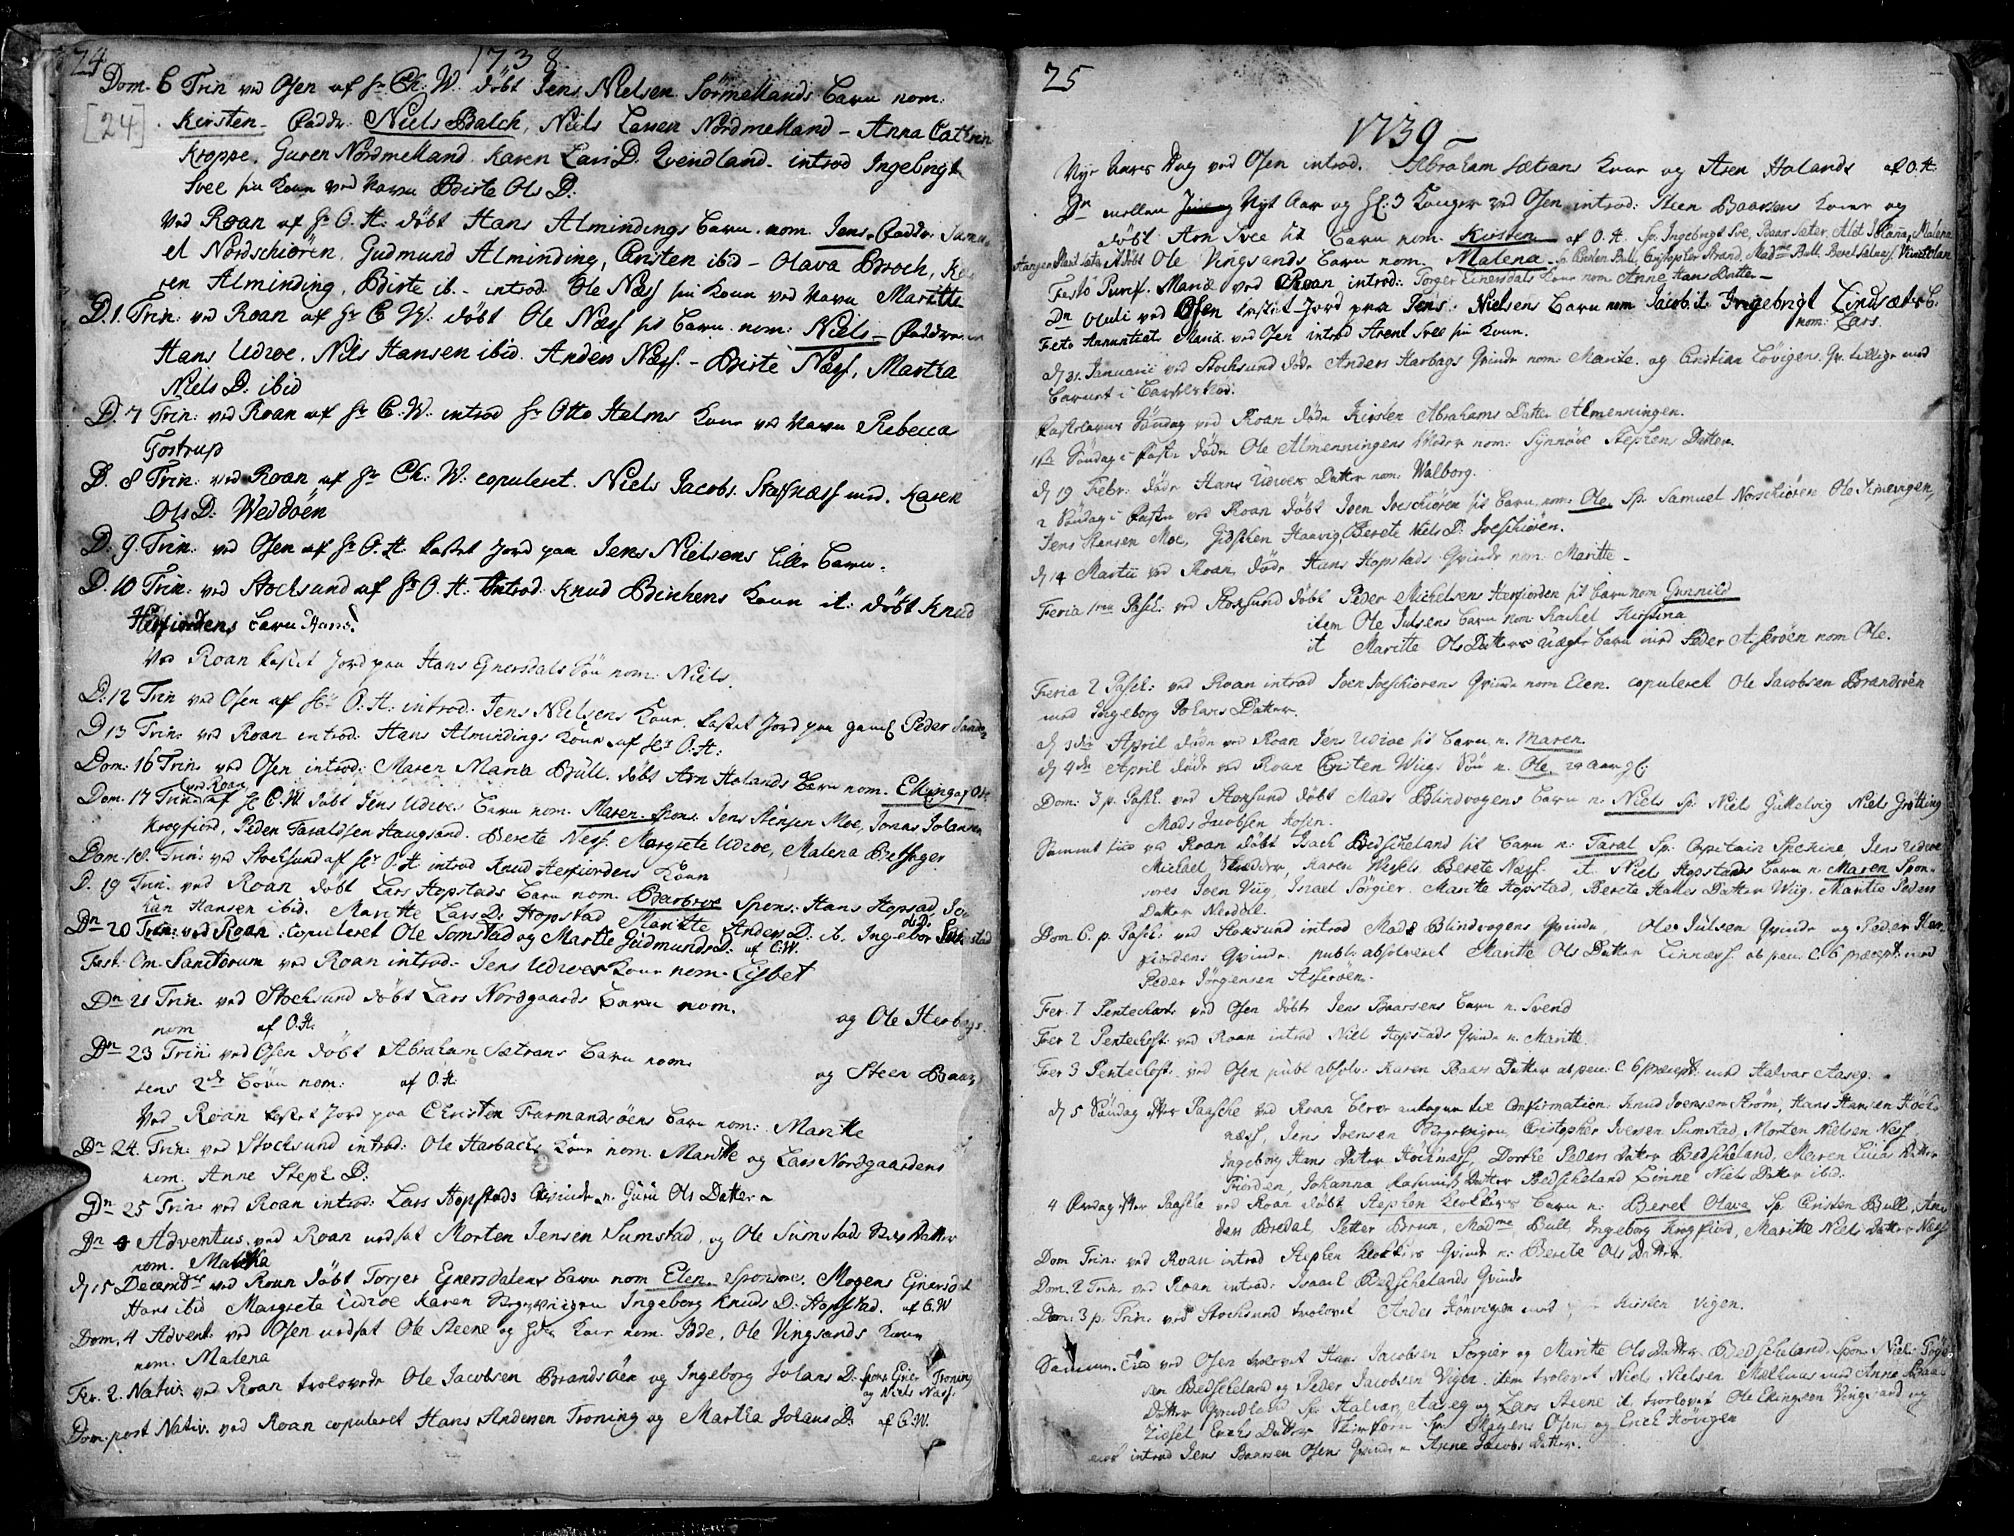 24
1738
Dom. 6 Trin ved Osen af Hr Ch: W. döbt Jens Nielsen Sörmellands barn nom:
[24] Kirsten. Faddr: Niels Balch, Niels Larsen Nordmelland - Anna Cathrin
Kroppe, Guren Nordmelland. Karen Lars D. Qvendland - introd Ingebrigt
Svee sin Kone ved Navn Birte Ols D.
Ved Roan af Hr O. H: döbt Hans Almindings barn nom. Jens. Faddr. Samu-
el Nordschiören, Gudmund Alminding, Cristen ibid - Olava Broch, Ka-
ren Alminding, Birte ib. - introd Ole Næss sin Kone ved Navn Maritte
D. 1. Trin: ved Roan af Hr C W. döbt Ole Næss sit barn nom: Niels - Faddr
Hans Udroe, Nils Hansen ibid. Anders Næss. - Birte Næss, Martha
Niels D. ibid
D. 7 Trin: ved Roan af Hr C. W. introd Hr Otto Halms Kone ved Navn Rebecca
Tostrup
D. 8 Trin: ved Roan af Hr Ch: W. copuleret. Niels Jacobs. Stafsnæss med. Karen
Ols D. Weddöen
D: 9 Trin: ved Osen af Hr O. H kastet Jord paa Jens Nielsens lille barn.
D. 10 Trin: ved Stocksund af Hr O. H: Introd Knud Brinkens Kone it: döbt Knud
Herfiordens barn Hans.
Ved Roan kastet Jord paa Hans Einersdals Sön nom: Niels.
D: 12 Trin ved Osen af Hr O. H: introd: Jens Nielsens Kone, kastet Jord paa gaml Peder
D 13 Trin: ved Roan introd: Hans Almindings Kone af Hr O. H:
Dom: 16 Trin: ved Osen introd: Maren Maria Bull. döbt Arn Holands barn nom. Elling af O H.
Dom. 17 Trin: ved Roan af Hr C. W döbt Jens Udroes barn nom. Maren. Spons. Jens Stensen Moe, Jonas Johansen
Krogfiord, Peder Taraldsen Haugsand. Berete Næss. Margrete Udroe, Malena Bessager
Dom. 18. Trin: ved Stocksund af Hr O. H introd Knud Herfiordens Kone
D. 19 Trin: ved Roan döbt Lars Hopstads barn nom. Barbroe Spons: Hans Hopstad Jo-
han Hansen ibid. Maritte Lars D. Hopstad Maritte Anders D: ib. Ingebor Ols D:
Dn 20 Trin: ved Roan: copuleret Ole Sumstad og Marite Gudmunds D. af C. W.
Fest. Om. Sanctorum ved Roan introd: Jens Udroes Kone nom. Lisbet
Dn 21 Trin ved Stocksund döbt Lars Nordgaards barn nom.
og Ole Harbags
nom af O. H.
Dn 23 Trin: ved Osen döbt Abraham Sætrans barn nom.
og Steen Baar
sens 2de börn nom: af O. H.
Ved Roan kastet Jord paa Christen Farmandsöens barn nom: Maritte
Dn 24. Trin: ved Stocksund introd: Ole Harbachs Kone nom. Maritte og Lars Nordgaardens
nom. Anne Steph D:
Dn 25 Trin: ved Roan introd: Lars Hopstads Qvinde n. Guru Ols Datter
Dn Adventus. ved Roan udsat Morten Jensen Sumstad, og Ole Sumstads Datter
nom. Malena
D 15 Decembr ved Roan döbt Torjer Einersdalens barn nom Elen. Spons. Mogens Einersdal
Hans ibid Margrete Udroe Karen Bergeviigen Ingeborg Knuds D. Hopstad. af C. W
Dom. 4 Advent: ved Osen udsat Ole Steene og Kone nom. Ode, Ole Vingsands Kone
nom. Malena
Fer. 2. Nativ. ved Roan trolovede Ole Jacobsen Brandsöen og Ingeborg Johans D. Spons. Einer Troning
og Niels Næss.
Dom: post Nativ. ved Roan copuleret Hans Andersen Troning og Martha Johans D. af C. W.
25
1739 -
Nyt Aars Dag ved Osen introd. Abraham Sætrans Kone og Aren Holands af O. H.
Dn mellem Nyt Aar og Hl: 3 Konger ved Osen introd: Steen Baarsens Kone og
döbt Arn Svee sit barn nom. Kirsten af O. H. Sp: Ingebrigt Sve, Baar Sæter, Malena
döbt Ole Vingsands barn nom. Malena Sp. Bull, Cristopher Strand, Madme Bull, Beret
Festo Purif. Mariæ ved Roan introd: Torger Einersdals Kone nom Anne Hans Datter -
Dn Oculi ved Osen kastet Jord paa Jens Nielsens barn nom Jacob it Ingebrigt Lindsæters b:
nom: Lars.
Festo Annuntiat Mariæ ved Osen introd Arent Svee sin Kone.
d 31. Januarii ved Stocksund döde Anders Harbags Qvinde nom: Marite. og Cristian Lövigens Qv. tillige med
barnet i
Fastelavns Söndag ved Roan döde Kirsten Abrahams Datter Almenningen.
1ste Söndag i Faste döde Ole Almenningens Moder nom: Synnöve Stephens Datter
D 19 Febr: döde Hans Udroes Datter nom: Walborg.
2 Söndag i Faste ved Roan döbt Iven Iveschiören sit barn nom: Ole. Sp. Samuel Norschiören Ole
Jens Stensen Moe, Gidsken Haarvig, Berete Niels D: Iveschiören.
d 14 Martii ved Roan döde Hans Hopstads Qvinde nom: Maritte -
Feria 1ma Pasch: ved Stoksund döbt Peder Michelsens Herfiorden sit barn nom Gunnild
item Ole Julsens barn nom: Rachel Kirstina
it Maritte Ols Datters uægte barn med Peder Asseröen nom Ole.
Feria 2 Pasch: ved Roan introd Iven Iveschiörens Qvinde nom Elen. copuleret Ole Jacobsen Brandsöen
med Ingeborg Johans Datter.
d 3die April döde ved Roan Jens Udroe sit barn n. Maren
d 4de April döde ved Roan Cristen Wiigs Sön n. Ole. 20 aar gl:
Dom: 3 p. Pasch. ved Stoksund döbt Mads Blindvogens barn n: Niels Sp: Niels Gükelvig Niels Gröttng
Mads Jacobsen Kosen.
Samme tiid ved Roan döbt Isach Bedscheland sit barn n: Taral Sp: Capitain Jens Udroe
Michael Skrædder, Karen Berete Næss. it Niels Hopstads barn n: Maren Spon-
sores Iven Viig, Israel Sörgier, Maritte Hopstad, Berete Hans Datter Wiig. Maritte Peders
Datter Nerdal.
Dom 6. p. Pasch: ved Stoksund introd Mads Blindvogens Qvinde, Ole Julsen Qvinde og Peder Her-
fiordens Qvinde. publ. absolveret Maritte Ols Datter Linnæss. ob pecc. C. 6 præcept: med
Peder Jörgensen Asseröen.
Fer. 1 Pentechost ved Osen döbt Jens Baarsens barn n. Svend
Fer 2 Pentechost ved Roan introd Niel Hopstads Qvinde n. Maritte
Fer 3 Pentechost. ved Osen publ absolv: Karen Baars Datter ob pecc: C. 6 præcept: med Halvar Aaseg.
d 5 Söndag efter Paasche ved Roan blev antagen til Confirmation: Knud Joensen Ström, Hans Hansen Höch-
næss, Jens Joensen Bergeviigen, Cristopher Iversen Sumstad, Morten Nielsen Næss
Ingeborg Hans Datter Höchnæss, Dorthe Peders Datter Bedscheland, Maren Lucia Datter
Fiorden, Johanna Rasmus Datter Bedscheland Linne Niels Datter ibid.
4 Onsdag efter Paasche ved Roan döbt Stephen Klockers barn n: Beret Olava Sp: Cristen Bull, An-
ders Bredal, Petter Brun, Madme Bull, Ingeborg Krogfiord, Maritte Niels Datter Næss
Dom Trin: ved Roan introd Stephen Klockers Qvinde n: Berete Ols Datter
Dom. 2 Trin: ved Roan introd: Isaach Bedschelands Qvinde
Dom: 3 p. Trin: ved Stocksund trolovet Anders Hönvigen med Kirsten Vigen.
Samme Tiid ved Osen trolovet Hans Jacobsen Sorgier og Maritte Ols Datter Bedscheland. Spon. Niels
sen Bedscheland og Peder Jacobsen Vigen. item trolovet Niels Nielsen Melhuus med Anne
Datter Qvindland Sp: Halvar Aaseg og Lars Steene it trolovet Ole Ellingsen Vingsand og
Zidsel Erichs Datter Skiervören Sp: Mogens Osen og Erich Hövigen
med introd Jens Baarsen Osens Qvinde n Anne Jacobs Datter.